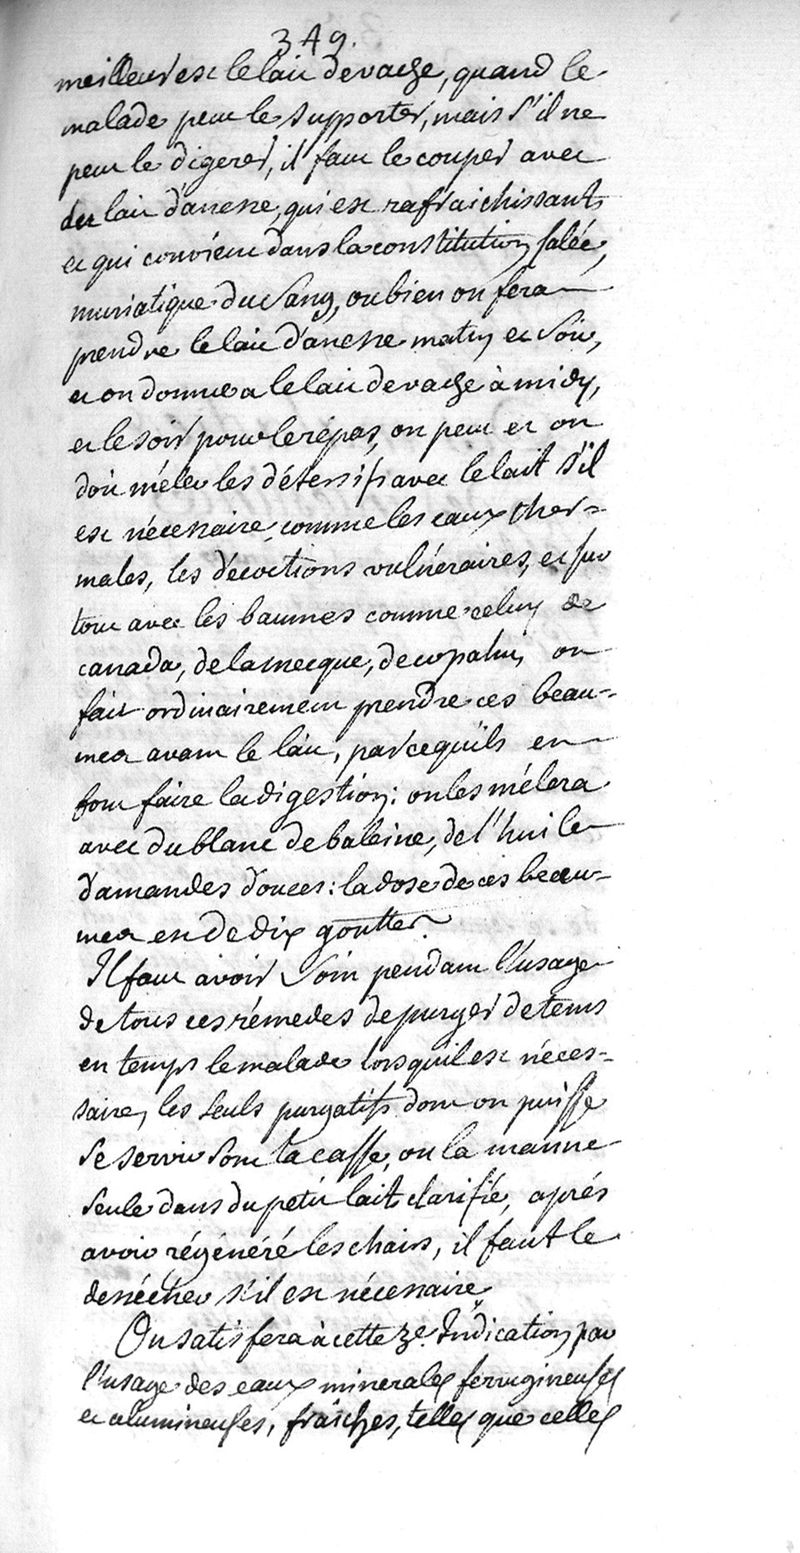 349.
meilleur est le lait de vache, quand le
malade peut le supporter, mais s'il ne
peut le digerer, il faut le couper avec
du lait d'anesse, qui est rafraichissant
et qui convient dans la constitution salée,
muriatique du sang, ou bien on fera
prendre le lait d'anesse matin et soir,
et on donnera le lait de vache à midy,
et le soir pour le répas, on peut et on
doit mêler les détersifs avec le lait s'il
est nécessaire, comme les eaux ther=
males, les décoctions vulnéraires, et sur
tout avec les baumes comme celuy de
canada, de la mecque, de copahu, on
fait ordinairement prendre ces beau=
mes avant le lait, parcequ'ils en
font faire la digestion: on les mêlera
avec du blanc de baleine, de l'huile
d'amandes douces: la dose de ces beau=
mes est de dix gouttes.
Il faut avoir soin pendant l'usage
de tous ces rémedes de purger de tems
en temps le malade lorsqu'il est néces=
saire, les seuls purgatifs dont on puisse
se servir sont la casse, ou la manne
seule dans du petit lait clarifié, aprés
avoir régénéré les chairs, il faut le
dessécher s'il est nécessaire
On satisfera à cette 3e. Indication par
l'usage des eaux minerales ferrugineuses
et alumineuses, fraîches, telles que celles